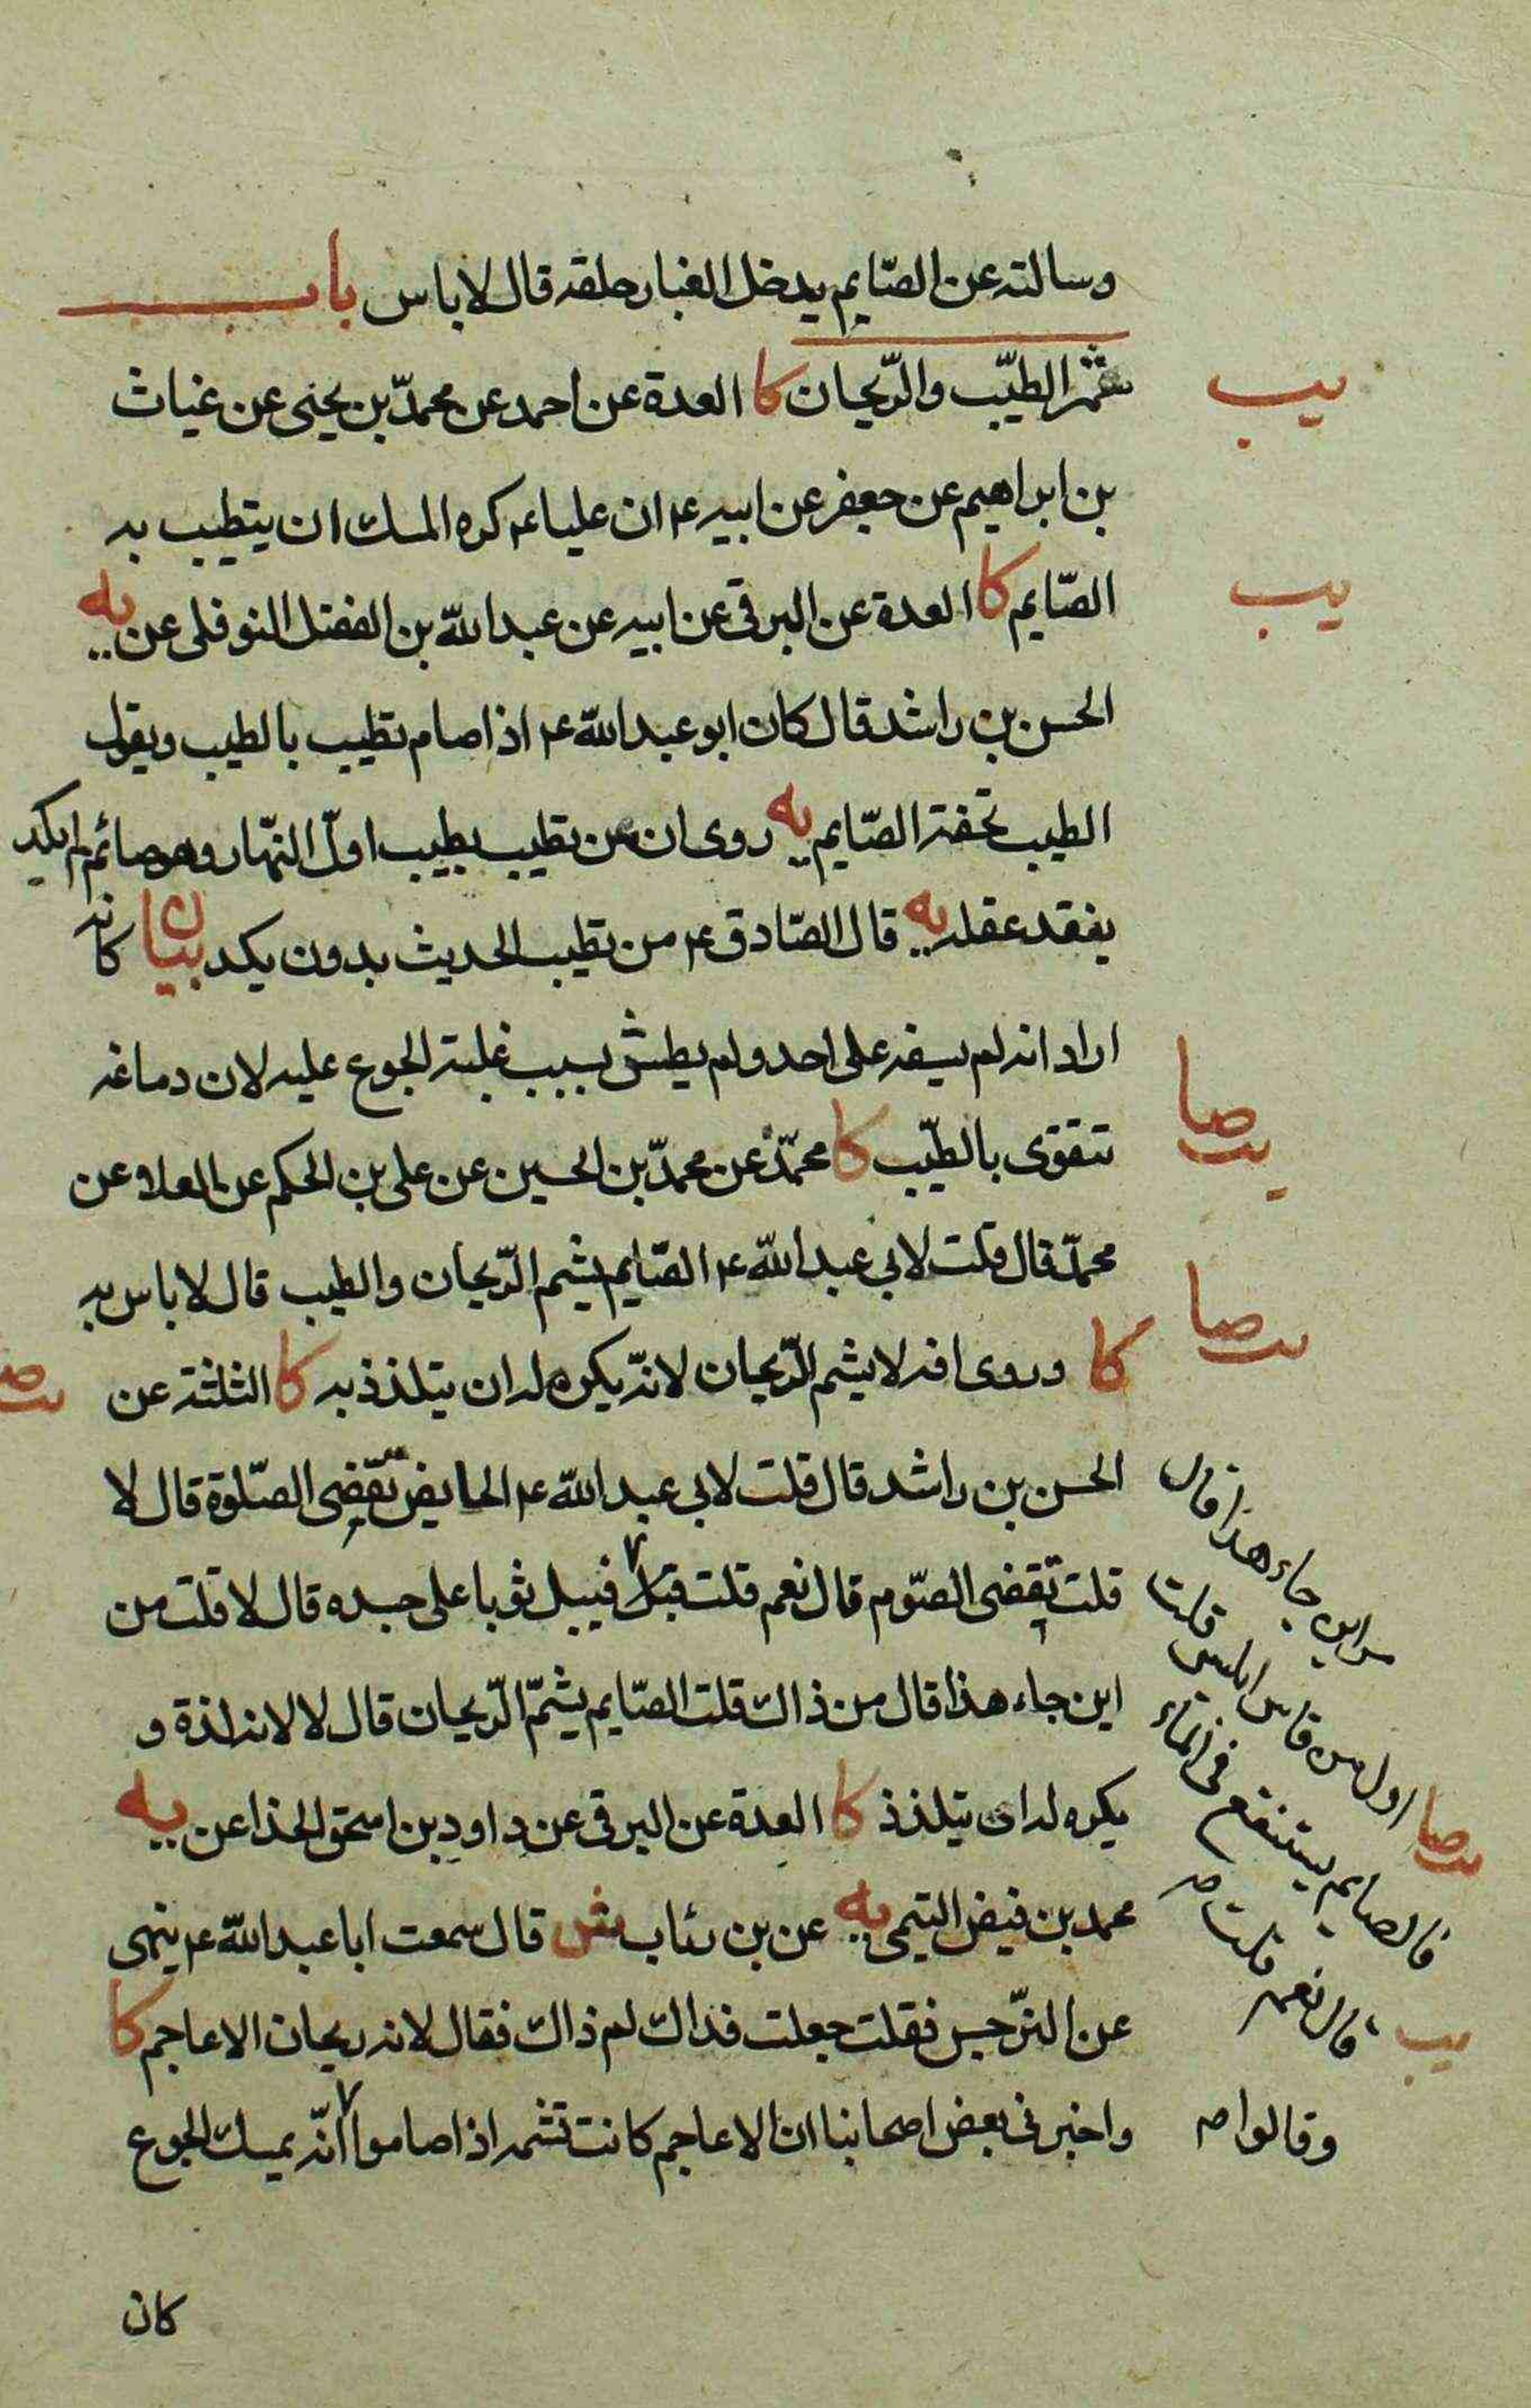 وسالته عن الصّايم يدخل الغبار حلقه قال لا باس باب
شمّ الطيّب والرّيحان كا العدة عن احمد عن محمدّ بن يحيى عن غياث
يب
بن ابراهيم عن جعفر عن ابيه ع ان عليا ع كره المسك ان يتطيب به
الصّايم كا العدة عن البرقى عن ابيه عن عبد الله بن الفضل النوفلى عن يه
يب
الحسن بن راشد قال كان ابو عبد الله ع اذا صام تطيب بالطيب ويقول
الطيب تحفة الصّايم يه روى ان من تطيب بطيب اولّ النّهار وهو صائم لم يكد
يفقد عقله يه قال الصّادق ع من تطيب الحديث بدون يكد بيان كانه
اراد انه لم يسفه على احد ولم يطش بسبب غلبة الجوع عليه لان دماغه
تتقوى بالطيّب كا محمّد عن محمدّ بن الحسين عن على بن الحكم عن العلا عن
يب صا
محمّد قال قلت لابى عبد الله ع الصّايم يشم الرّيحان والطيب قال لا باس به
كا وروى انه لا يشم الرّيحان لانهّ يكره له ان يتلذذ به كا الثلثة عن
يب صا
الحسن بن راشد قال قلت لابى عبد الله ع الحايض تقضى الصّلوة قال لا
قلت تقضى الصّوم قال نعم قلت فيبل ثوبا على جسده قال لا قلت من
اين جاء هذا قال من ذاك قلت الصّايم يشمّ الرّيحان قال لا لانه لذة و
يكره له ان يتلذذ كا العدة عن البرقى عن داود بن اسحق الحذا عن يه
محمد بن فيض التيمى يه عن بن رئاب ش قال سمعت ابا عبد الله ع ينهى
عن النرّجس فقلت جعلت فداك لم ذاك فقال لانه ريحان الاعاجم كا
واخبرنى بعض اصحابنا ان الاعاجم كانت تشمه اذا صاموا انّه يمسك الجوع
من اين جاء هذا قال
اول من قاس ابليس قلت
فالصايم يستنقع فى الماء
قال نعم قلت صح
يب صا
يب
وقالوا صح
كان